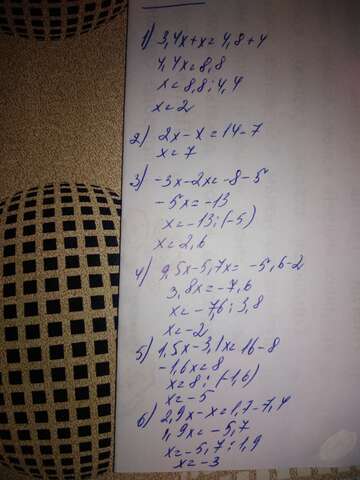 1) 3,4x+x=4,8+4
4,4x=8,8
x=8,8:4,4
x=2
2) 2x-x=14-7
x=7
3) -3x-2x=-8-5
-5x=-13
x=-13:(-5)
x=2,6
4) 9,5x-5,7x=-5,6-2
3,8x=-7,6
x=-7,6:3,8
x=-2
5) 1,5x-3,1x=16-8
-1,6x=8
x=8:(-1,6)
x=-5
6) 2,9x-x=1,7-7,4
1,9x=-5,7
x=-5,7:1,9
x=-3